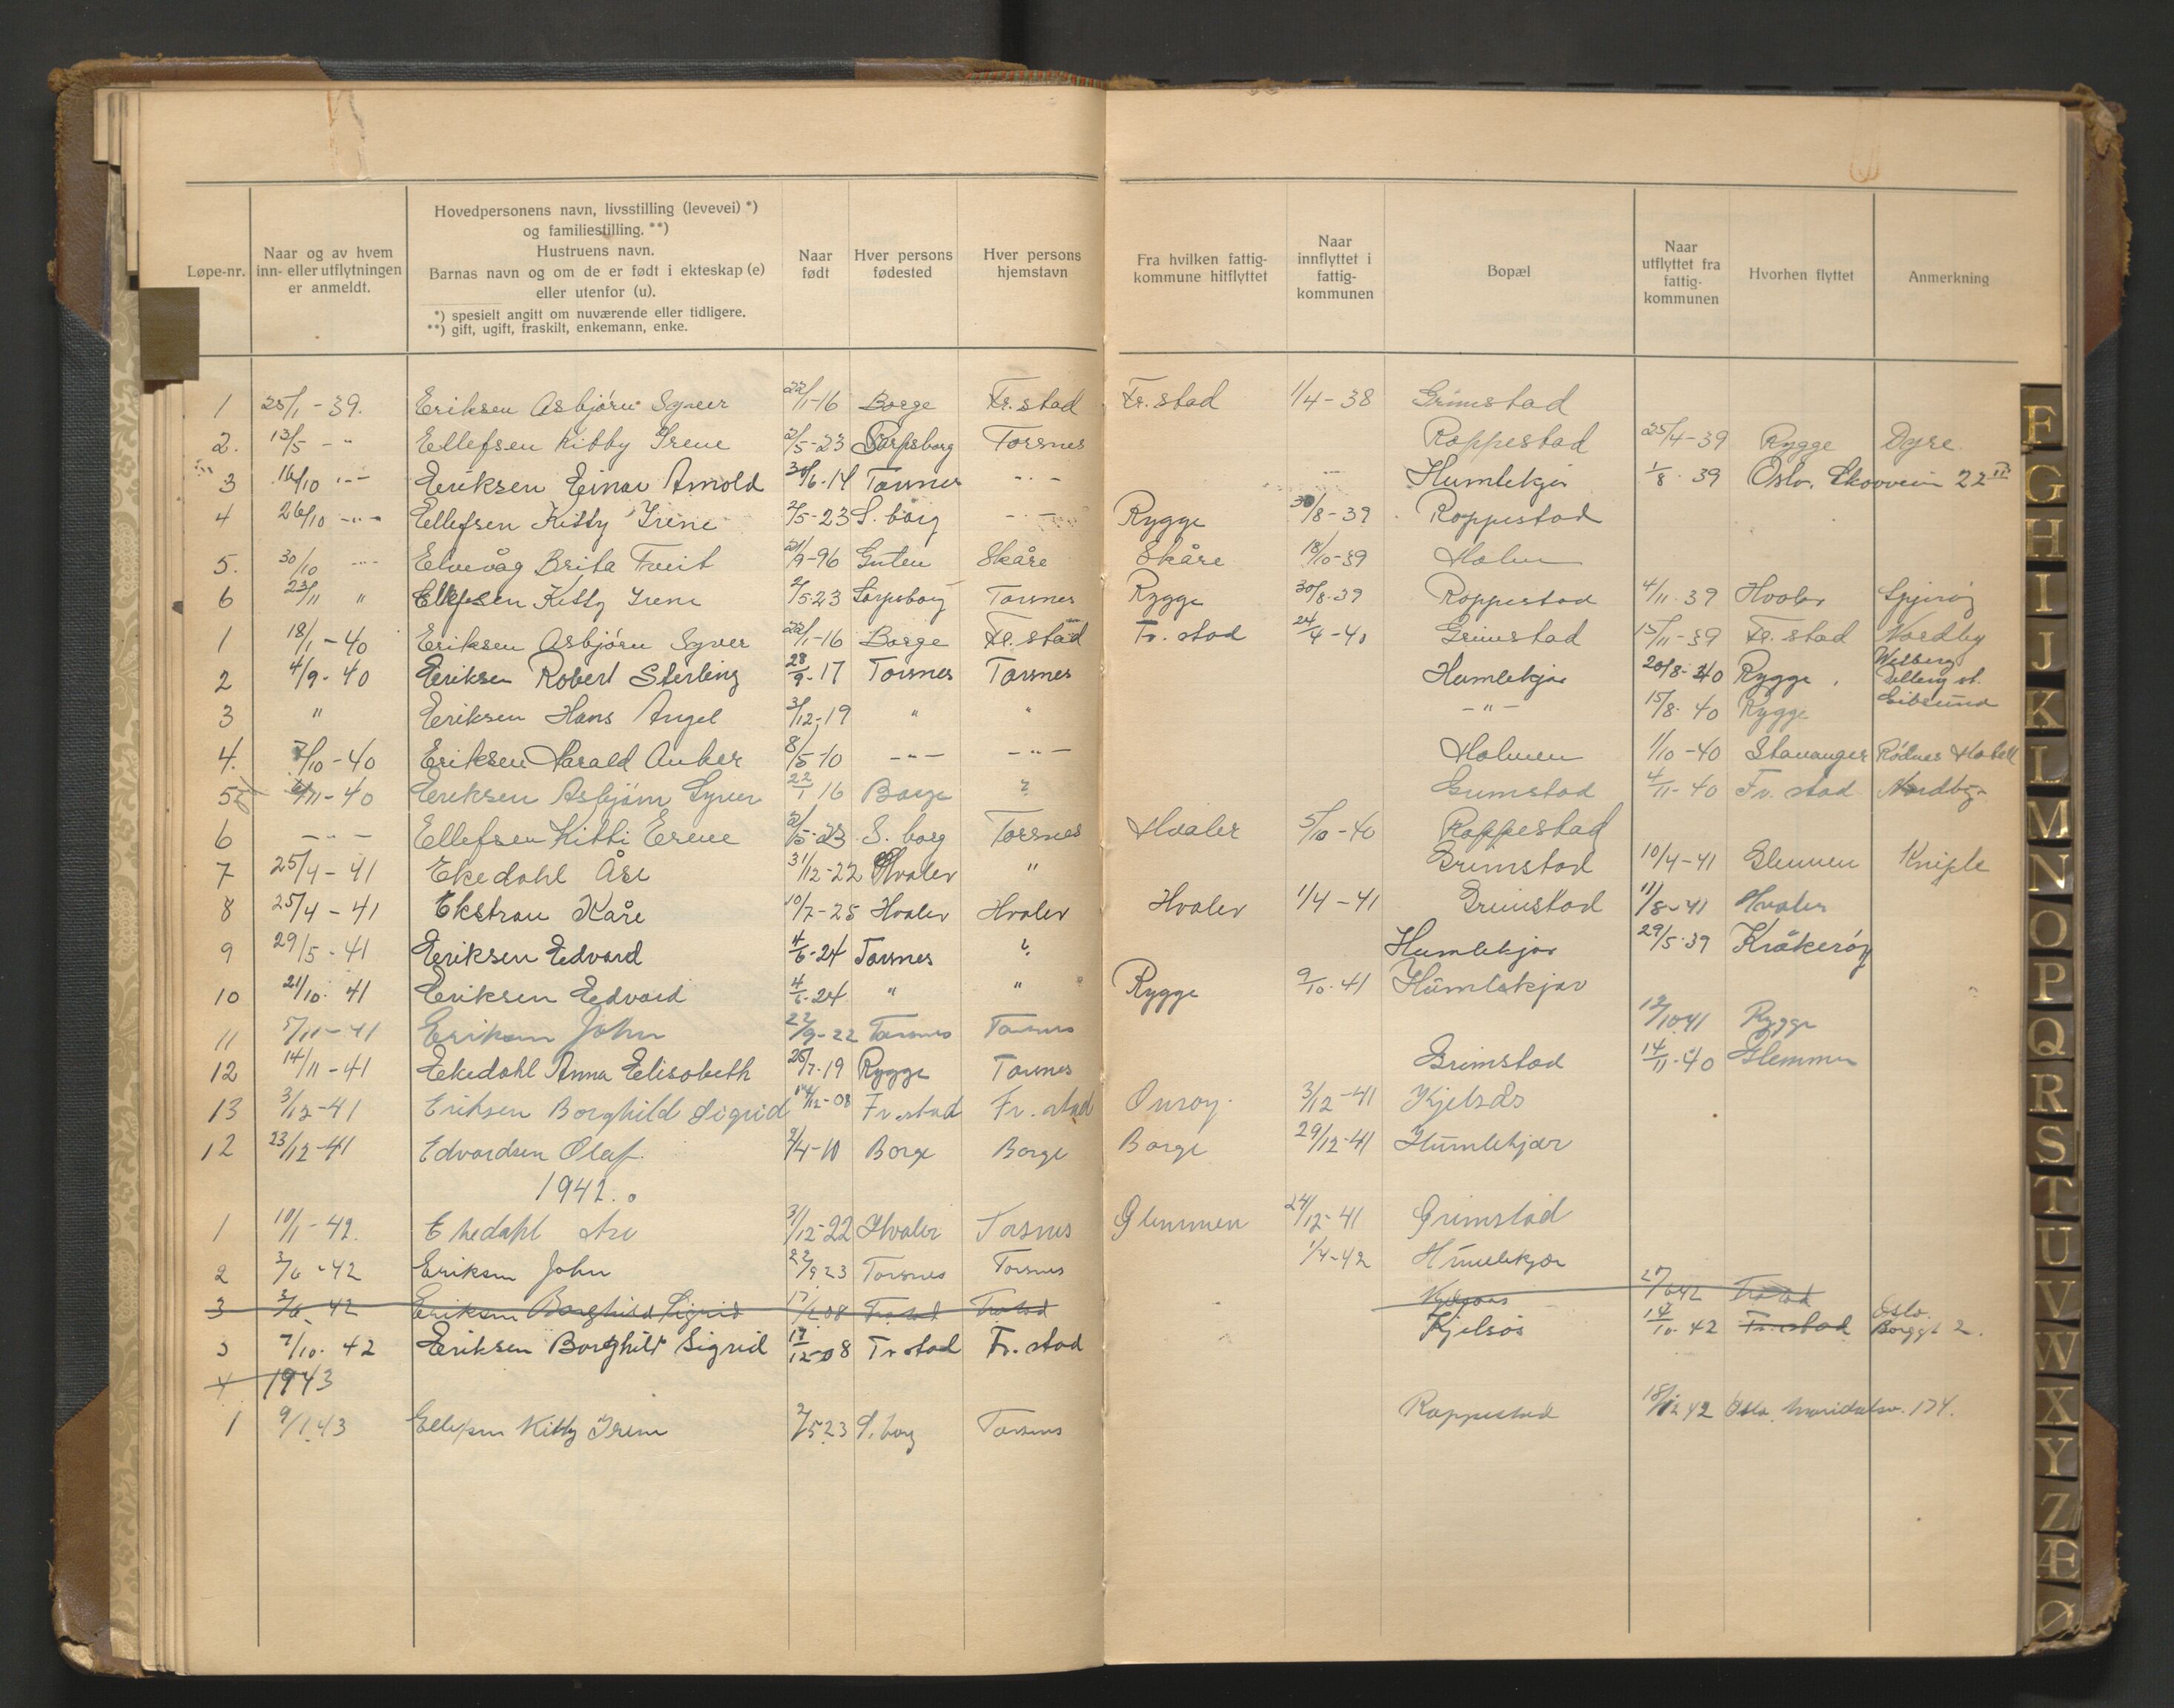 Løpe-nr.
Naar og av hvem inn- eller utflytningen er anmeldt.
Hovedpersonens navn, livsstilling (levevei) *)
og familiestilling. **)
Hustruens navn.
Barnas navn og om de er født i ekteskap (e)
eller utenfor (u).
*) spesielt angitt om nuværende eller tidligere.
**) gift, ugift, fraskilt, enkemann, enke.
Naar født
Hver persons fødested
Hver persons hjemstavn
Fra hvilken fattig-kommune hitflyttet
Naar innflyttet i fattig-kommunen
Bopæl
Naar utflyttet fra fattig-kommunen
Hvorhen flyttet
Anmerkning
1 25/1 - 39. Eriksen Asbjørn Syver 22/1-16 Borge Fr.stad Fr.stad 1/4-38 Grimstad
2. 13/5 - " Ellefsen Kitby Irene 2/5-23 Sarpsborg Torsnes Roppestad 25/4-39 Rygge Dyre
3 16/10 -"- Eriksen Einar Arnold 30/6-14 Torsnes -"- Humlekjær 1/8-39 Oslo. Skovvein 22 III
4 26/10 -"- Ellefsen Kitty Irene 2/5-23 S.borg -"- Rygge 30/8-39 Roppestad
5. 30/10 -"- Elvevåg Brita Tveit 21/9-96 Skåre Skåre 18/10-39 Holm
6 23/11 " Ellefsen Kitty Irene 2/5-23 Sarpsborg Torsnes Rygge 30/8-39 Roppestad 4/11-39 Hvaler Spjærøy
1 18/1-40 Eriksen Asbjørn Syver 22/1-16 Borge Fr.stad Fr.stad 24/4-40 Grimstad 15/11-39 Fr.stad Nordby
2 4/9-40 Eriksen Robert Sterling 28/9-17 Torsnes Torsnes Humlekjær 20/8-40 Rygge
3 " Eriksen Hans Angel 3/12-19 " " -"- 15/8-40 Rygge
4. 7/10-40 Eriksen Harald Anker 8/5-10 -"- -"- Holmen 1/10-40 Stavanger Rödnes Hotell
5 6/11-40 Eriksen Asbjørn Syver 22/1 16 Borge ? Grimstad 4/11-40 Fr.stad Nordby
6 -"- Ellefsen Kitti Erene 2/5-23 S.borg Torsnes Hvaler 5/10-40 Roppestad
7 25/4-41 Ekedahl Åse 31/12-22 Hvaler " Grimstad 10/4-41 Glemmen Kniple
8 25/4-41 Ekstrøm Kåre 10/7-25 Hvaler Hvaler Hvaler 1/4-41 Grimstad 11/8-41 Hvaler
9 29/5-41 Eriksen Edvard 4/6-24 Torsnes " Humlekjær 29/5-39 Kråkerøy
10 21/10-41 Eriksen Edvard 4/6-24 " " Rygge 9/10-41 Humlekjær
11 5/11-41 Eriksen John 22/9-22 Torsnes Torsnes 12/10 41 Rygge
12 14/11-41 Eekedahl Anna Elisabeth 25/7-19 Rygge Torsnes Grimstad 14/11-40 Glemmen
13 3/12-41 Eriksen Borghild Sigrid 17/12-08 Fr.stad Fr.stad Onsøy 3/12-41 Kjelsås
12 23/12-41 Edvardsen Olaf 9/4-10 Borge Borge Borge 29/12-41 Humlekjær
1942.
1 10/1-42. Ekedahl Åse 31/12-22 Hvaler Torsnes Glemmen 24/12-41 Grimstad
2 3/6-42 Eriksen John 22/9 23 Torsnes Torsnes 1/4-42 Humlekjær
3 3/6-42 Eriksen Borghild Sigrid 17/12 08 Fr.stad Fr.stad Kjelsøs Fr.stad
3 7/10-42 Eriksen Borghild Sigrid 17/12-08 Fr.stad Fr.stad Kjelsøs 14/10-42 Fr.stad Oslo. Borggt 2.
4 1943
1 9/1 43 Ellefsen Kitty Irene 2/5 23 S.borg Torsnes Roppestad 18/12 42 Oslo, Maridalsv. 174.
F
G
H
I
J
K
L
M
N
O
P
Q
R
S
T
U
V
W
X
Y
Z
Æ
Ø